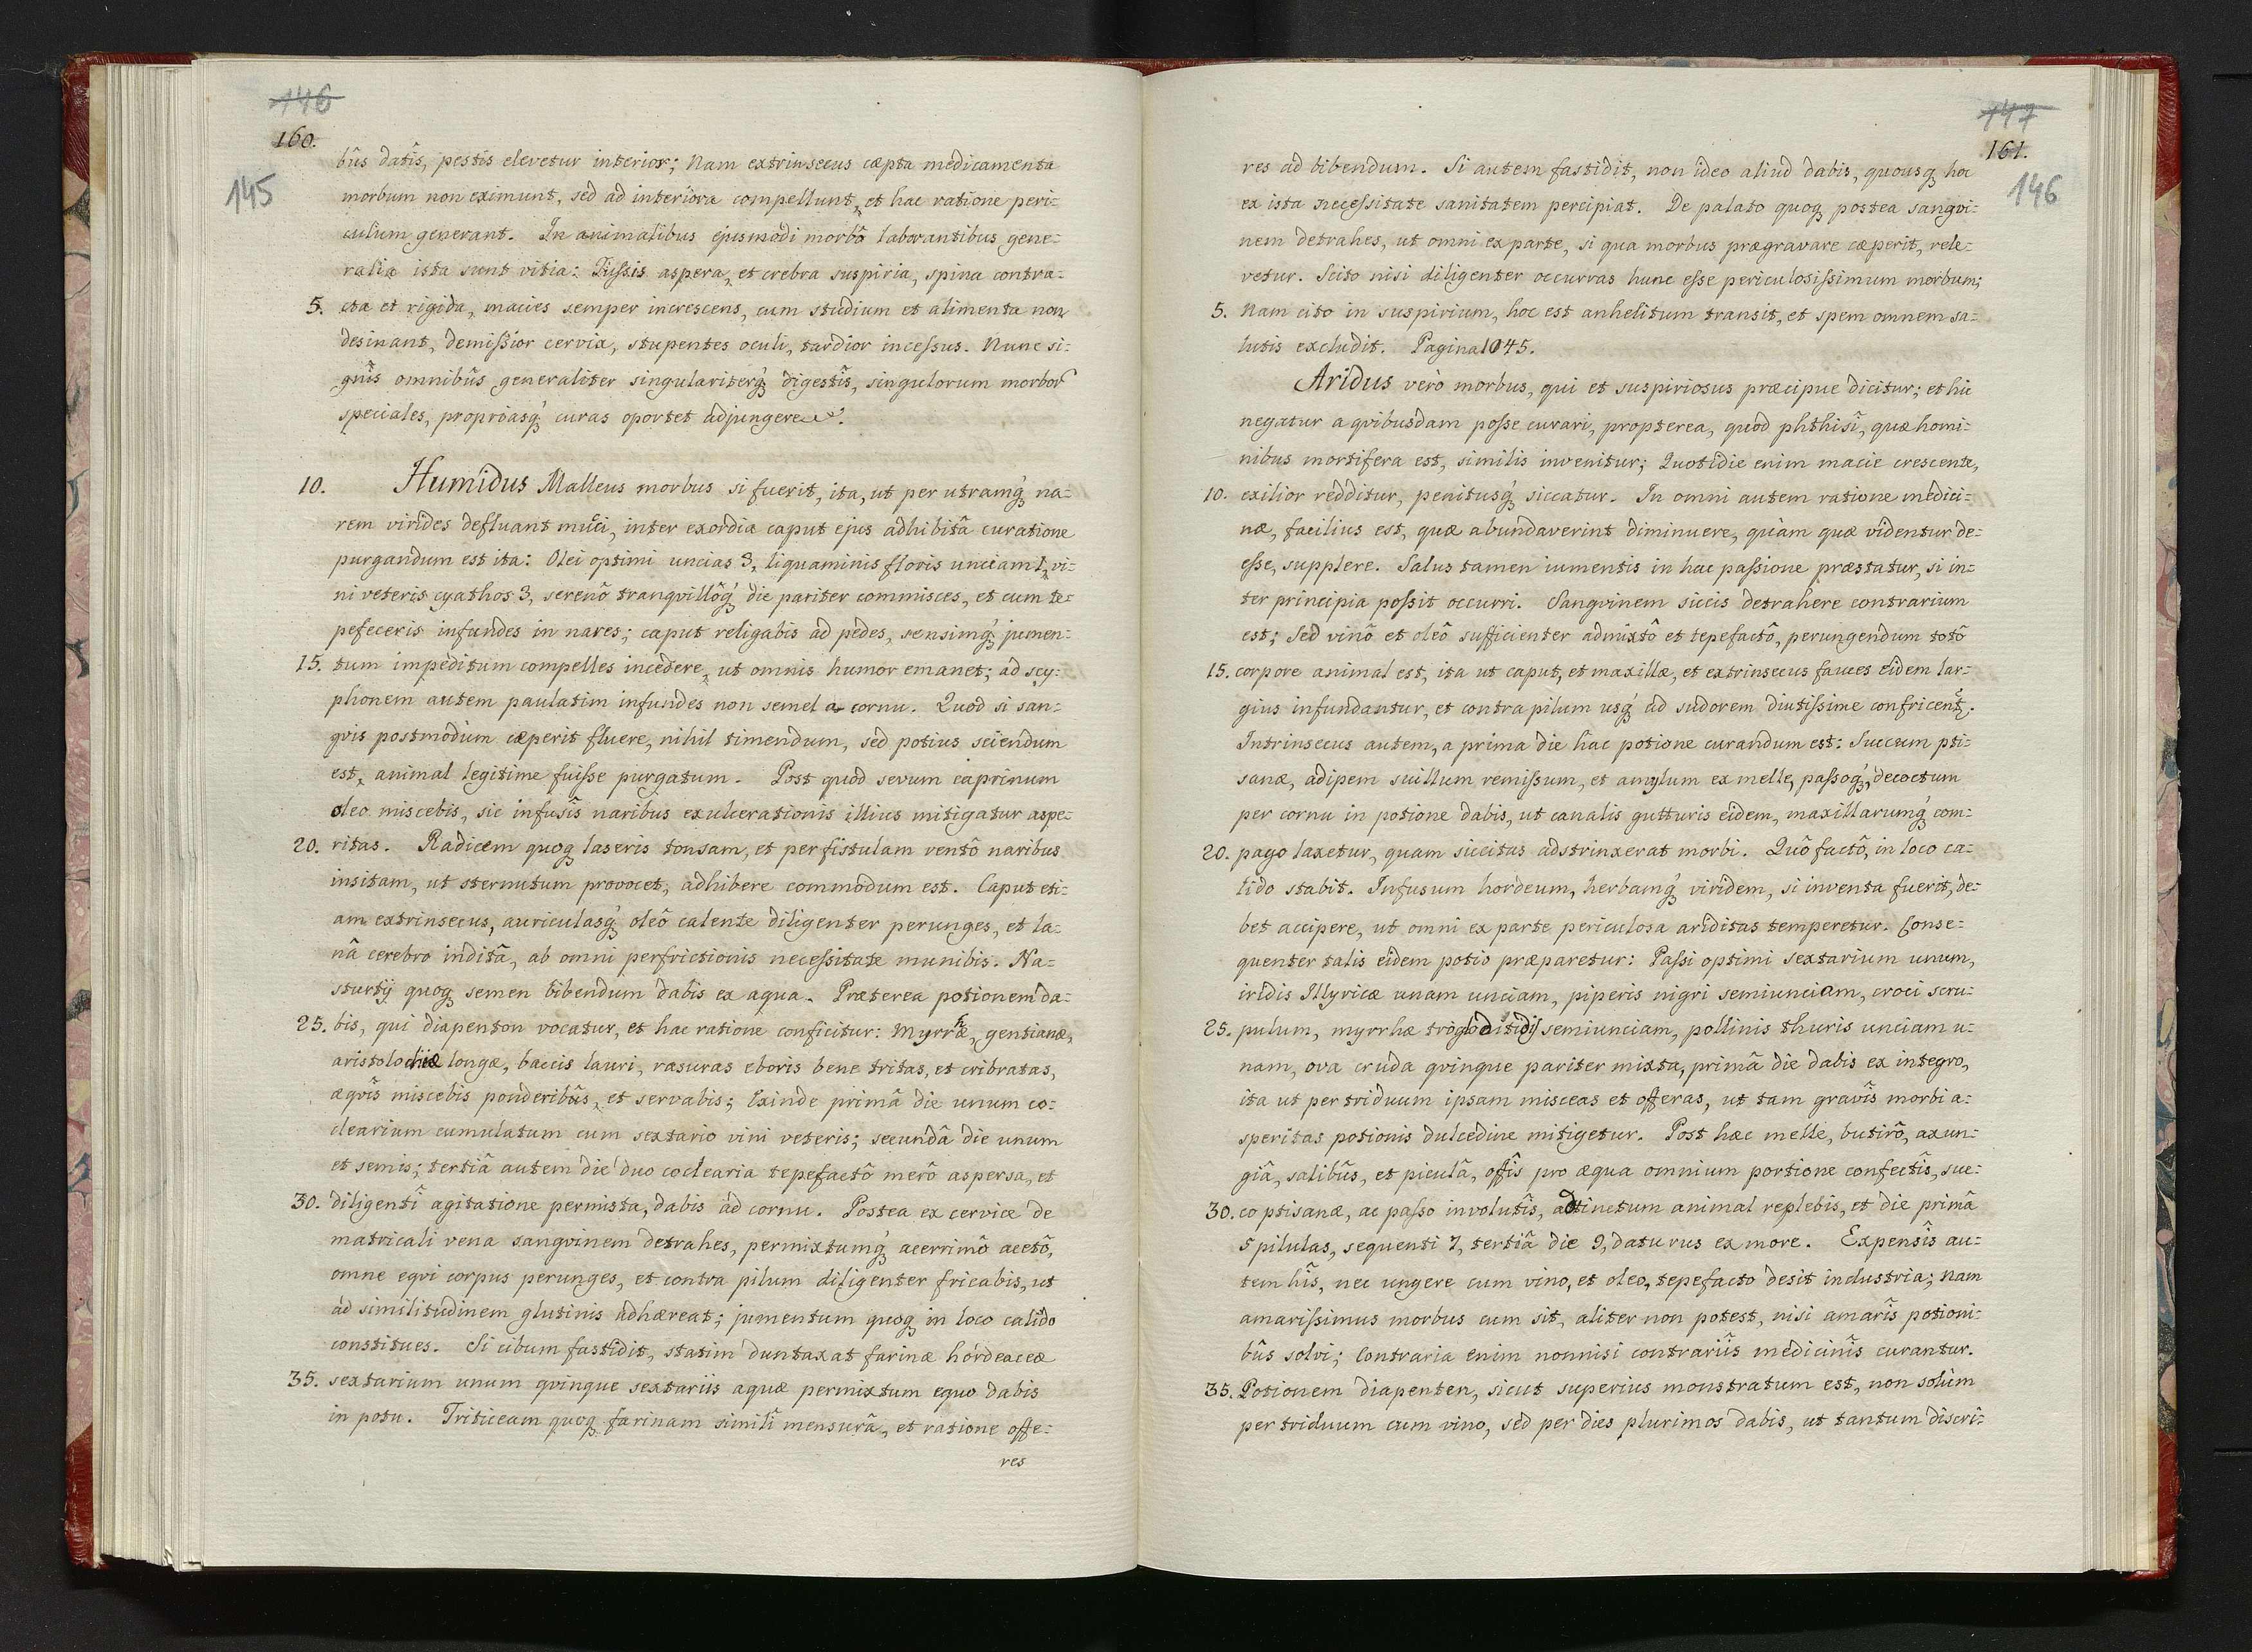 146
160.
145
bûs datîs, pestis elevetur interior; Nam extrinsecus cæpta medicamenta
morbum non eximunt, sed ad interiora compellunt, et hac ratione peri=
culum generant. In animalibus ejusmodi morbô laborantibus gene=
ralia ista sunt vitia: Tussis aspera, et crebra suspiria, spina contra=
5. cta et rigida, macies semper increscens, cum studium et alimenta non
desinant, demissior cervix, stupentes oculi, tardior incessus. Nunc si=
gnîs omnibûs generaliter singulariterq́ʒ digestîs, singulorum morbor
speciales, propriasq́ʒ curas oportet adjungere.
10. Humidus Malleus morbus si fuerit, ita, ut per utramq́ʒ na=
rem virides defluant muci, inter exordia caput ejus adhibitâ curatione
purgandum est ita: Olei optimi uncias 3, liquaminis floris unciam 1, vi=
ni veteris cyathos 3, serenô tranqvillôq́ʒ die pariter commisces, et cum te=
pefeceris infundes in nares; caput religabis ad pedes, sensimq́ʒ jumen=
15. tum impeditum compelles incedere, ut omnis humor emanet; ad scy=
phonem autem paulatim infundes non semel a cornu. Quod si san=
gvis postmodùm cæperit fluere, nihil timendum, sed potius sciendum
est, animal legitime fuisse purgatum. Post quod sevum caprinum
oleo miscebis, sic infusîs naribus exulcerationis illius mitigatur aspe=
20. ritas. Radicem quoqʒ laseris tonsam, et per fistulam ventô naribus
insitam, ut sternutum provocet, adhibere commodum est. Caput eti=
am extrinsecus, auriculasq́ʒ oleô calente diligenter perunges, et la=
nâ cerebro inditâ, ab omni perfrictionis necessitate munibis. Na=
sturtij quoqʒ semen bibendum dabis ex aqua. Præterea potionem da=
25. bis, qui diapenton vocatur, et hac ratione conficitur: Myrrhæ, gentianæ,
aristolochiæ longæ, baccis lauri, rasuras eboris bene tritas, et cribratas,
æqvîs miscebis ponderibûs, et servabis; Exinde primâ die unum co=
clearium cumulatum cum sextario vini veteris; secundâ die unum
et semis; tertiâ autem die duo coclearia tepefactô merô aspersa, et
30. diligentî agitatione permista, dabis ad cornu. Postea ex cervice de
matricali vena sangvinem detrahes, permixtumq́ʒ acerrimô acetô,
omne eqvi corpus perunges, et contra pilum diligenter fricabis, ut
ad similitudinem glutinis adhæreat; jumentum quoqʒ in loco calido
constitues. Si cibum fastidit, statim duntaxat farinæ hordeaceæ
35. sextarium unum qvinque sextariis aquæ permixtum equo dabis
in potu. Triticeam quoqʒ farinam similî mensurâ, et ratione offe=
res
147
161.
146
res ad bibendum. Si autem fastidit, non ideo aliud dabis, quousqʒ hoc
ex ista necessitate sanitatem percipiat. De palato quoqʒ postea sangvi=
nem detrahes, ut omni ex parte, si qua morbus prægravare cæperit, rele=
vetur. Scito nisi diligenter occurras hunc esse periculosissimum morbum;
5. Nam cito in suspirium, hoc est anhelitum transit, et spem omnem sa=
lutis excludit. Pagina 1045.
Aridus verò morbus, qui et suspiriosus præcipue dicitur; et hic
negatur a qvibusdam posse curari, propterea, quod phthisî, quæ homi=
nibus mortifera est, similis invenitur; Quotidie enim macie crescente,
10. exilior redditur, penitusq́ʒ siccatur. In omni autem ratione medici=
næ, facilius est, quæ abundaverint diminuere, quàm quæ videntur de=
esse, supplere. Salus tamen iumentis in hac passione præstatur, si in=
ter principia possit occurri. Sangvinem siccis detrahere contrarium
est; Sed vinô et oleô sufficienter admixtô et tepefactô, perungendum totô
15. corpore animal est, ita ut caput, et maxillæ, et extrinsecus fauces eidem lar=
gius infundantur, et contra pilum usq́ʒ ad sudorem diutissime confricent.
Intrinsecus autem, a prima die hac potione curandum est: Succum pti=
sanæ, adipem suillum remissum, et amylum ex melle, passoq́ʒ, decoctum
per cornu in potione dabis, ut canalis gutturis eidem, maxillarumq́ʒ com=
20. pago laxetur, quam siccitas adstrinxerat morbi. Quô factô, in loco ca=
lido stabit. Infusum hordeum, herbamq́ʒ viridem, si inventa fuerit, de=
bet accipere, ut omni ex parte periculosa ariditas temperetur. Conse=
quenter talis eidem potio præparetur: Passi optimi sextarium unum,
iridis Illyricæ unam unciam, piperis nigri semiunciam, croci scru=
25. pulum, myrrhæ trogloditidis semiunciam, pollinis thuris unciam u=
nam, ova cruda qvinque pariter mixta, primâ die dabis ex integro,
ita ut per triduum ipsam misceas et offeras, ut tam gravîs morbi a=
speritas potionis dulcedine mitigetur. Post hæc melle, butirô, axun=
giâ, salibûs, et piculâ, offîs pro æqua omnium portione confectîs, suc=
30. co ptisanæ, ac passo involutîs, adtinctum animal replebis, et die primâ
5 pilulas, sequenti 7, tertiâ die 9, daturus ex more. Expensîs au=
tem hîs, nec ungere cum vino, et oleo, tepefacto desit industria; Nam
amarissimus morbus cum sit, aliter non potest, nisi amarîs potioni=
bûs solvi; Contraria enim nonnisi contrariîs medicinîs curantur.
35. Potionem diapenten, sicut superius monstratum est, non solùm
per triduum cum vino, sed per dies plurimos dabis, ut tantum discri=